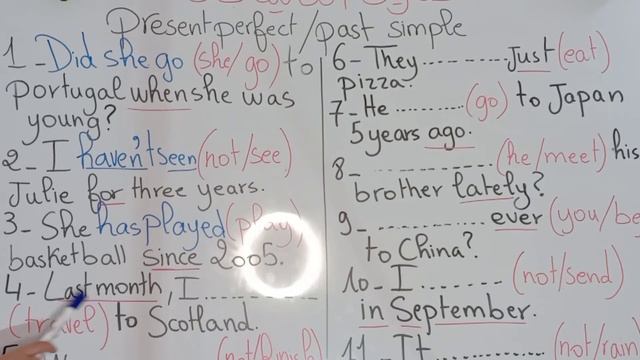 Present perfect/past simple
1 - Did she go (she/go) to
Portugal when she was
young?
2 - I haven't seen (not/see)
Julie for three years.
3 - She has played (play)
basketball since 2005.
4 - Last month, I ..........
(travel) to Scotland.
(not/finish)
6 - They .......... Just (eat)
pizza.
7 - He .......... (go) to Japan
5 years ago.
8 - .......... (he/meet) his
brother lately?
9 - .......... ever (you/be
to China?
10 - I ....... (not/send)
in September.
11 - It ....... (not/rain)